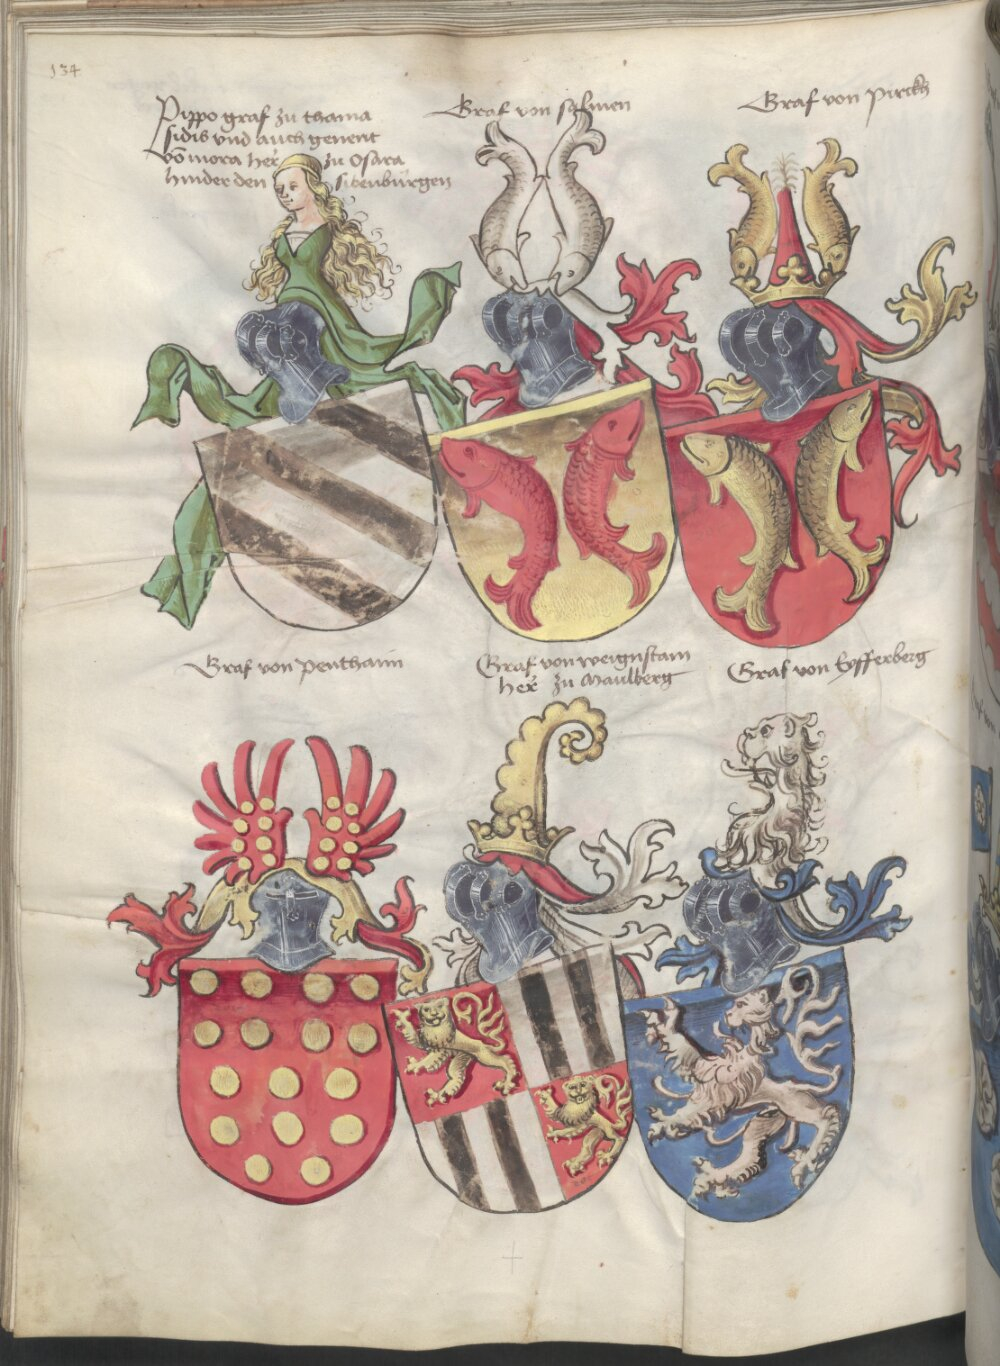 134
Pippo graf zu thama
sidis vnd auch genent
vo mora her zu Osara
hinder den sibenbürgen
Graf von salmen
Graf von pirckh
Graf von penthaim
Graf von weignstain
her zu Maulberg
Graf von Eysserberg